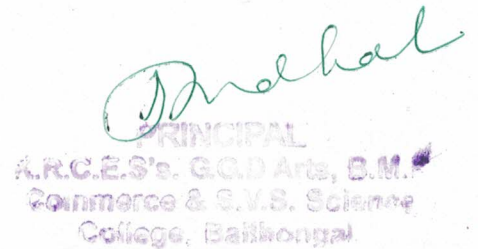 PRINCIPAL
K.R.C.E.S's. G.G.D Arts, B.M.P
Commerce & S.V.S. Science
College, Bailhongal